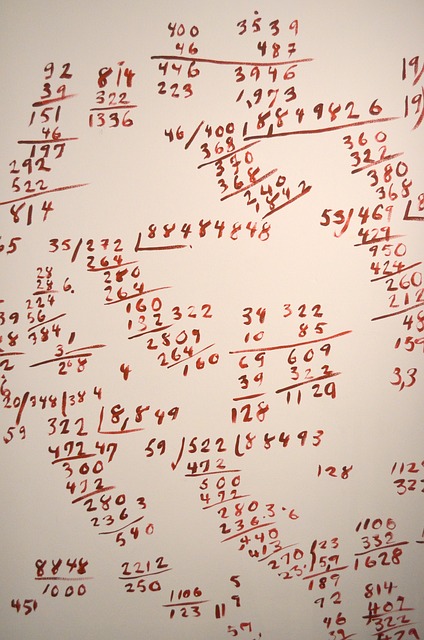 400 3539
46 487
446 3946
223 1,973
92 814
39 322
151 1336
46
197
292
522
814
19/
19)
46/400 8849826
368
320
368
240
1842
360
322
380
368
53/469
429
950
424
260
212
48
159
3,3
65 35/272 88484848
264
280
264
160
132 322
2809
264
160
28
28 6.
224
56
384
31
268
4
39
34 322
10 85
69 609
39 322
128 1129
20/348/384
59
322 8,849
472 47
300
472
280
2363
540
59/522 88493
472
500
472
280 3.6
236.
440
413
270
23
128
112
322
123
59
189
92
46
1106
332
1628
814
407
322
8848
1000
451
2212
250
1106
123
5
119
57